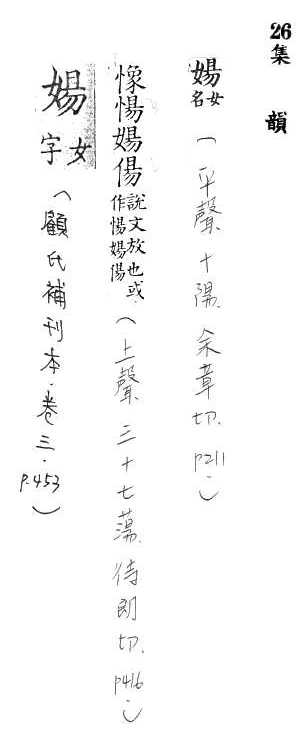 26集 韻
婸女名(平聲 十陽. 余章切. p211.)
愓婸傷說文放也或作愓婸傷(上聲. 三十七蕩. 待朗切. p416.)
婸女字(顧氏補刊本.卷三.p.453)